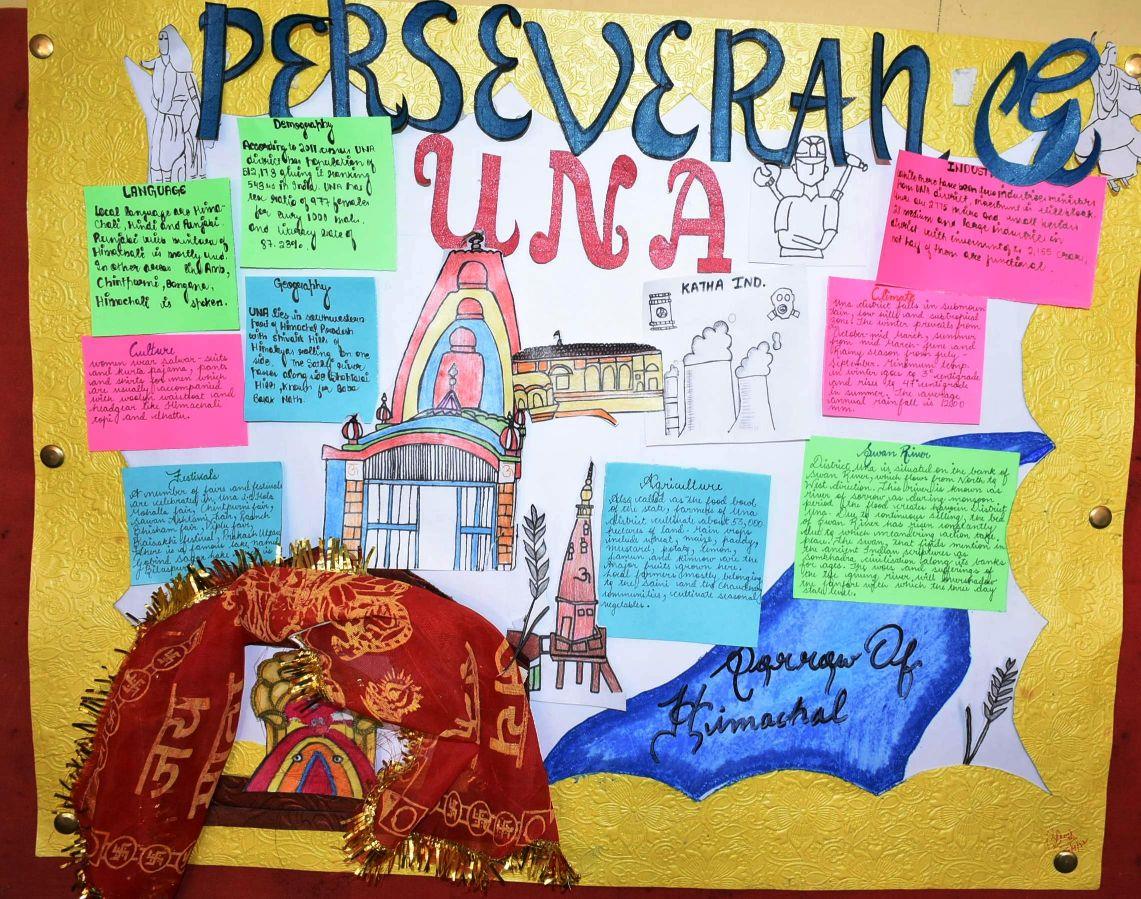 PERSEVERANCE
UNA
LANGUAGE
Local language are Hima-
chali, Hindi and Punjabi.
Punjabi with mixture of
Himachali is mostly used.
In other areas like Amb,
Chintpurni, Bangana,
Himachali is spoken.
Demography
According to 2011 census UNA
district has Population of
giving it ranking
in India. UNA has
sex ratio of 977 females
for every 1000 males.
and literacy rate of
87.23%.
Culture
women wear salwar-suits
and kurta pajama, pants
and shirts for men which
are usually accompanied
with woolen waistcoat and
headgear like Himachali
topi and
Geography
UNA lies in southwestern
part of Himachal Pradesh
with Shivalik Hills of
Himalaya rolling on one
side. The Satluj river
passes along
Hills, known for Baba
Balak Nath.
Festivals
A number of fairs and festivals
are celebrated in Una i.e Hola
Mohalla fair, Chintpurni fair,
Sawan Ashtami fair,
fair,
Baisakhi festival,
There is a famous lake named
Gobind Sagar Lake
KATHA IND.
INDUST
While there have been two industries ministers
from UNA district, investment is still
are 2115 micro and small
21 medium and large Industries in
district with investment of 2,155 crores,
not half of them are functional.
Climate
Una district falls in
low hills and subtropical
zone. The winter prevails from
October-mid March, summer
from mid March-June and
Rainy season from July-
September. Minimum temp.
in winter goes to 3° centigrade
and rises to centigrade
in summer. The average
annual rainfall is
mm.
Agriculture
Also called as the food bowl
of the state, farmers of Una
district cultivate about 53,000
hectares of land. Main crops
include wheat, maize, paddy,
mustard, potato, lemon,
Jamun and kinnow are the
major fruits grown here.
Local farmers mostly belonging
to the Saini and the Chaudhary
communities, cultivate seasonal
vegetables.
Swan River
District Una is situated on the bank of
Swan River, which flows from North to
West direction. This River is known as
river of sorrow as during monsoon
period the flood creates havoc in District
Una. Due to continuous silting, the bed
of Swan River has risen constantly
due to which meandering action take
place. The Swan, that finds mention in
the ancient Indian scriptures as
civilisation along its banks
for ages. The woes and sufferings of
the life giving river will overshadow
the fanfare with which the three day
state level.
Sorrow Of
Himachal
जय
जय